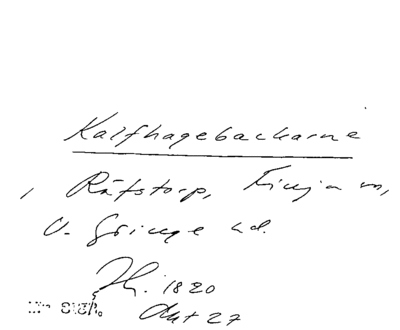 Kalfhagebackarne
, Råfstorp, Finja sn,
V. Göinge hd.
Fh. 1820
akt 27